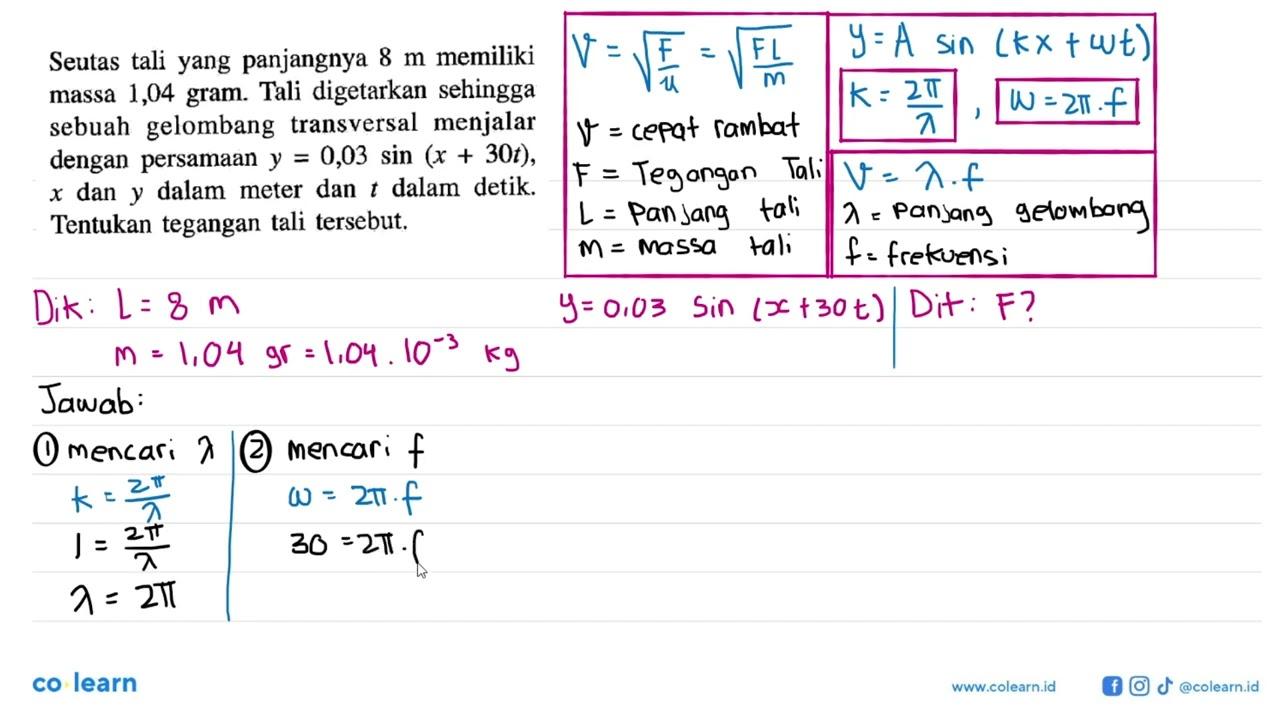 Seutas tali yang panjangnya 8 m memiliki
massa 1,04 gram. Tali digetarkan sehingga
sebuah gelombang transversal menjalar
dengan persamaan y = 0,03 sin (x + 30t),
x dan y dalam meter dan t dalam detik.
Tentukan tegangan tali tersebut.
V = √(F/u) = √(FL/m)
v = cepat rambat
F = Tegangan Tali
L = Panjang tali
m = massa tali
y = A sin (kx + ωt)
k = 2π/λ , ω = 2π.f
V = λ.f
λ = Panjang gelombang
f = frekuensi
Dik: L = 8 m
m = 1,04 gr = 1,04 . 10⁻³ kg
y = 0,03 sin (x + 30t)
Dit: F?
Jawab:
① mencari λ
k = 2π/λ
1 = 2π/λ
λ = 2π
② mencari f
ω = 2π.f
30 = 2π.
co learn
www.colearn.id
@colearn.id